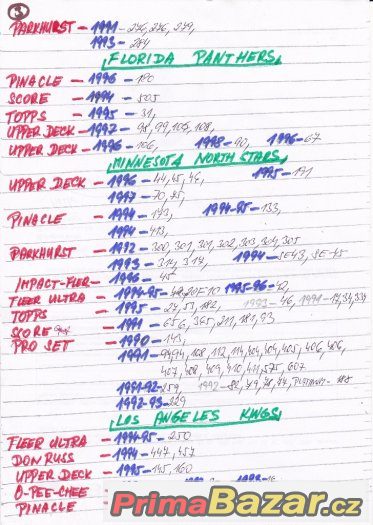 3
PARKHURST - 1991 - 276, 276, 279,
1993 - 284
FLORIDA PANTHERS
PINACLE - 1996 - 180
SCORE - 1994 - 505
TOPPS - 1995 - 31,
UPPER DECK - 1992 - 98, 99, 105, 108,
UPPER DECK - 1996 - 106, 1998 - 90, 1996 - 67
MINNESOTA NORTH STARS
UPPER DECK - 1996 - 44, 45, 46, 1995 - 171
1997 - 70, 75,
PINACLE - 1994 - 143, 1994-95 - 133,
1994 - 413,
PARKHURST - 1992 - 300, 301, 301, 302, 303, 304, 305
1993 - 314, 317, 1994 - SE43, SE-45
IMPACT-FLER - 1996 - 45
FLEER ULTRA - 1994-95 - 1995-96 - 42,
TOPPS - 1995 - 27, 53, 182, 1992 - 46, 1991 - 17, 34, 334
SCORE - 1991 - 656, 365, 211, 181, 93
PRO SET - 1990 - 143,
1991 - 94, 94, 108, 112, 114, 404, 404, 405, 406, 406,
407, 408, 409, 410, 411, 575, 607
1991-92 - 259, 1992 - 82, 79, 78, 84, PLATINUM - 188
1992-93 - 229
LOS ANGELES KINGS
FLEER ULTRA - 1994-95 - 250
DON RUSS - 1994 - 447, 457
UPPER DECK - 1995 - 145, 160
O-PEE-CHEE
PINACLE -
PrimaBazar.cz